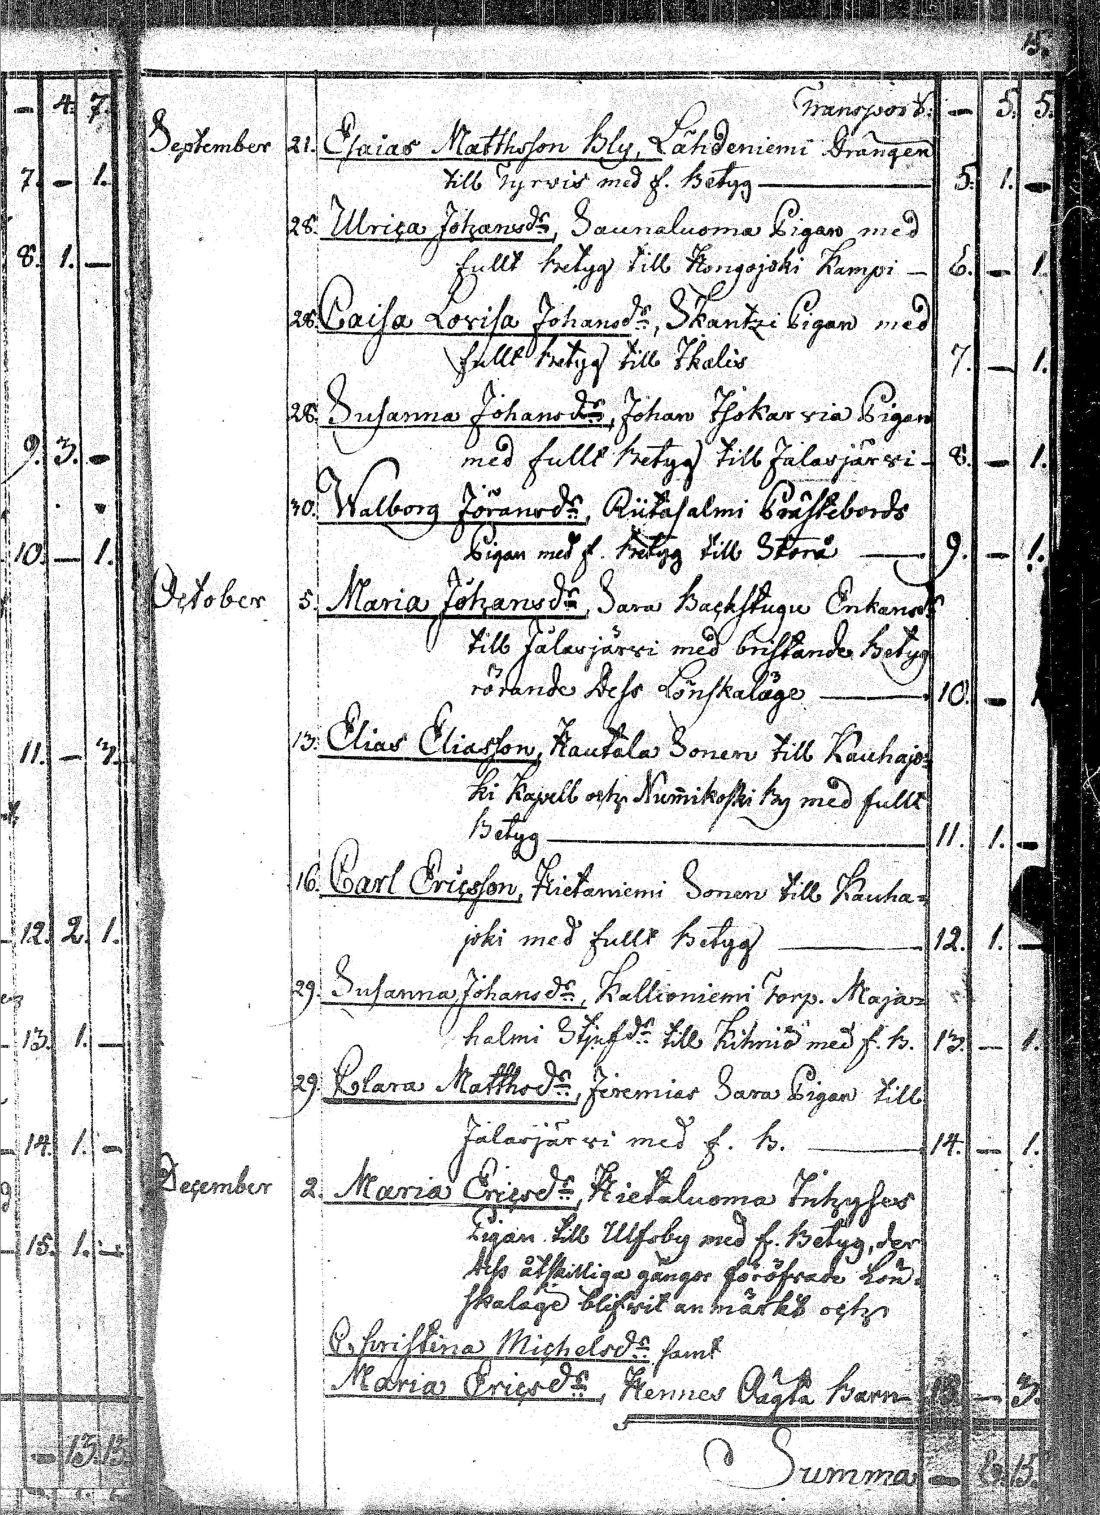 15.
Transport. — 5. 5.
September 21. Esaias Matthsson Bly, Lähdeniemi Drängen
till Tyrvis med f. Betyg — 5. 1. —
28. Ulrica Johansdr, Saunaluoma Pigan med
fullt betyg till Hongojoki Kampi — 6. — 1.
28. Caisa Lovisa Johansdr, Skantzi Pigan med
fullt betyg till Ikalis 7. — 1.
28. Susanna Johansdr, Johan Isokarvia Pigan
med fullt betyg till Jalasjärvi — 8. — 1.
30. Walborg Jöransdr, Riitasalmi Prästebords
Pigan med f. betyg till Storå — 9. — 1.
October 5. Maria Johansdr, Sara Backstugu Enkans dr
till Jalasjärvi med bristande Betyg
rörande Dess Lönskaläge — 10. —
13. Elias Eliasson, Hautala Sonen till Kauhajo=
ki Kapell och Nummikoski by med fullt
Betyg — 11. 1. —
16. Carl Ericsson, Hietaniemi Sonen till Kauha=
joki med fullt betyg — 12. 1. —
29. Susanna Johansdr, Kallioniemi Torp. Maja=
halmi Stjufdr till Kihniö med f. b. 13. — 1.
29. Clara Matthsdr, Jeremias Sara Pigan till
Jalasjärvi med f. b. — 14. — 1.
December 2. Maria Ericsdr, Hietaluoma Inhyses
Pigan till Ulfsby med f. Betyg, der
dess åtskilliga gånger föröfvade Lön=
skaläge blifvit anmärkt och
Christina Michelsdr samt
Maria Ericsdr, Hennes Oägta Barn — 15. — 3.
Summa — 6. 15.
— 4. 7.
7. — 1.
8. 1. —
9. 3. —
10. — 1.
11. — 3.
12. 2. 1.
13. 1. —
14. 1. —
15. 1. —
— 13. 13.